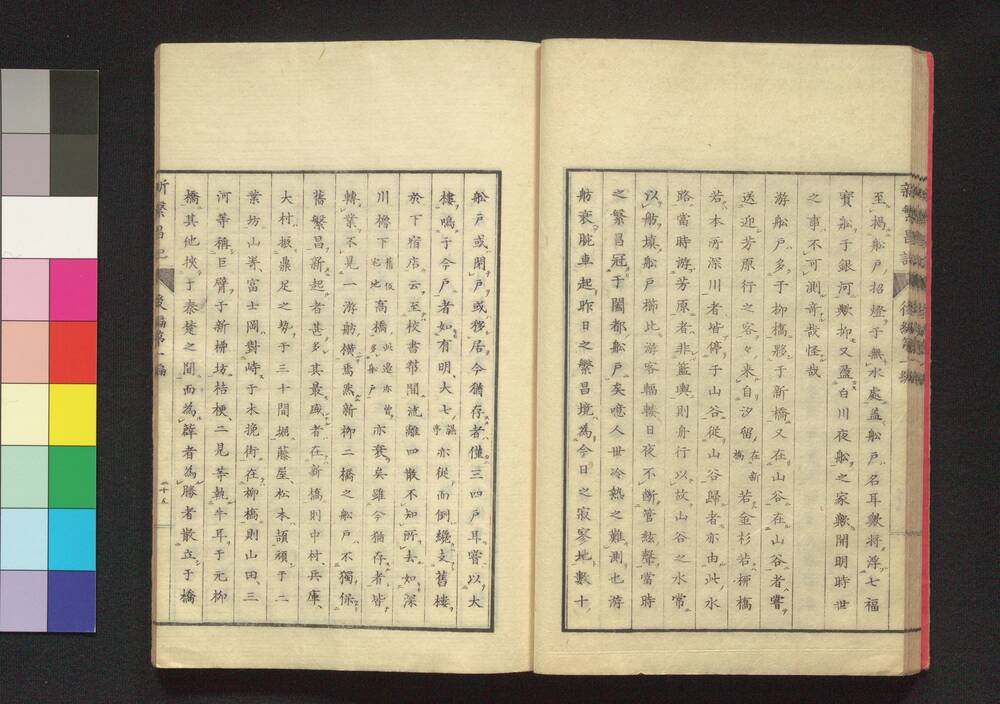 新繁昌記 後編第一編
至、揭船戶招燈于無水處蓋船戶名耳歟將浮七福
寶船于銀河歟抑又盪白川夜船之家歟開明時世
之事不可測奇哉怪哉
游船戶多于柳橋夥于新橋又在山谷在山谷者嘗
送迎芳原行之客々來自汐留在新橋若金杉若柳橋
若本所深川者皆停于山谷從山谷歸者亦由此水
路當時游芳原者非籃輿則舟行以故山谷之水常
以舫塡船戶櫛比游客輻輳日夜不斷管絃聲當時
之繁昌冠于闔都船戶矣噫人世冷熱之難測也游
舫衰腕車起昨日之繁昌境為今日之寂寞地數十
船戶或閉戶或移居今猶存者僅三四戶耳嘗以大
樓鳴于今戶者如有明、大七、亦從而倒纔支舊樓
於下宿店云至校書幇間流離四散不知所去如深
川櫓下高橋亦衰矣雖今猶存者皆
轉業不見一游舫橫焉然新柳二橋之船戶不獨保
舊繁昌新起者甚多其最盛者在新橋則中村、兵庫、
大村振鼎足之勢于三十間堀藤屋、松本頡頏于二
葉坊山嵜、富士岡對峙于木挽街在柳橋則山田、三
河等稱巨臂于新柳坊桔梗、二見等執牛耳于元柳
橋其他挾于泰楚之間而為薛者為滕者散立于橋
新繁昌記 後編第一編 二十五